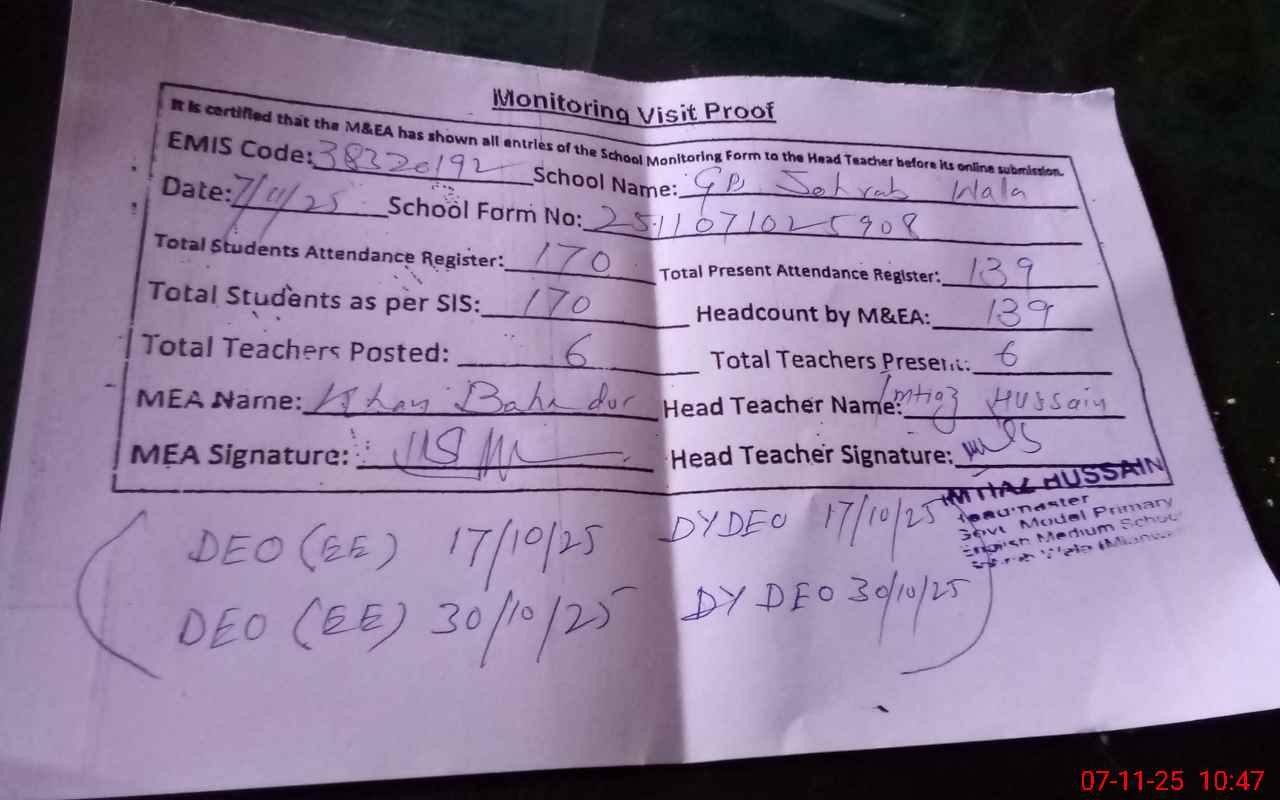 Monitoring Visit Proof
It is certified that the M&EA has shown all entries of the School Monitoring Form to the Head Teacher before its online submission.
EMIS Code: 38320192 School Name: GPS Sohrab Wala
Date: 7/11/25 School Form No: 2511071025908
Total Students Attendance Register: 170 Total Present Attendance Register: 139
Total Students as per SIS: 170 Headcount by M&EA: 139
Total Teachers Posted: 6 Total Teachers Present: 6
MEA Name: Khan Bahadur Head Teacher Name: Imtiaz Hussain
MEA Signature: Head Teacher Signature:
IMTIAZ HUSSAIN
Headmaster
Govt. Model Primary
English Medium School
DEO (EE) 17/10/25 DYDEO 17/10/25
DEO (EE) 30/10/25 DY DEO 30/10/25
07-11-25 10:47